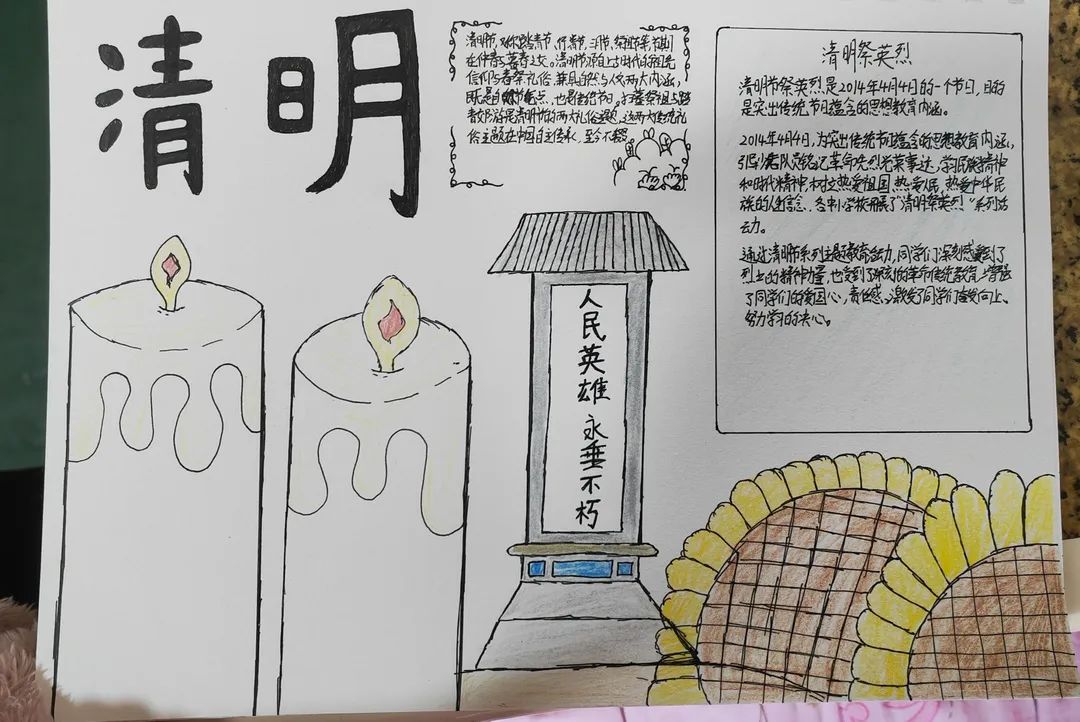 清明
清明节,又称踏青节、行清节、三月节、祭祖节等,节期
在仲春与暮春之交。清明节源自上古时代的祖先
信仰与春祭礼俗,兼具自然与人文两大内涵,
既是自然节气点,也是传统节日。扫墓祭祖与踏
青郊游是清明节的两大礼俗主题,这两大传统礼
俗主题在中国自古传承,至今不辍。
清明祭英烈
清明节祭英烈是2014年4月4日的一个节日,目的
是突出传统节日蕴含的思想教育内涵。
2014年4月4日,为突出传统节日蕴含的思想教育内涵,
引导少先队员铭记革命先烈光荣事迹,学习民族精神
和时代精神,树立热爱祖国、热爱人民、热爱中华民
族的信念、各中小学校开展了“清明祭英烈”系列活
动。
通过清明节系列主题教育活动,同学们深刻感受到了
烈士的精神力量,也受到了深刻的革命传统教育,增强
了同学们的爱国心,责任感,激发了同学们积极向上、
努力学习的决心。
人民英雄永垂不朽